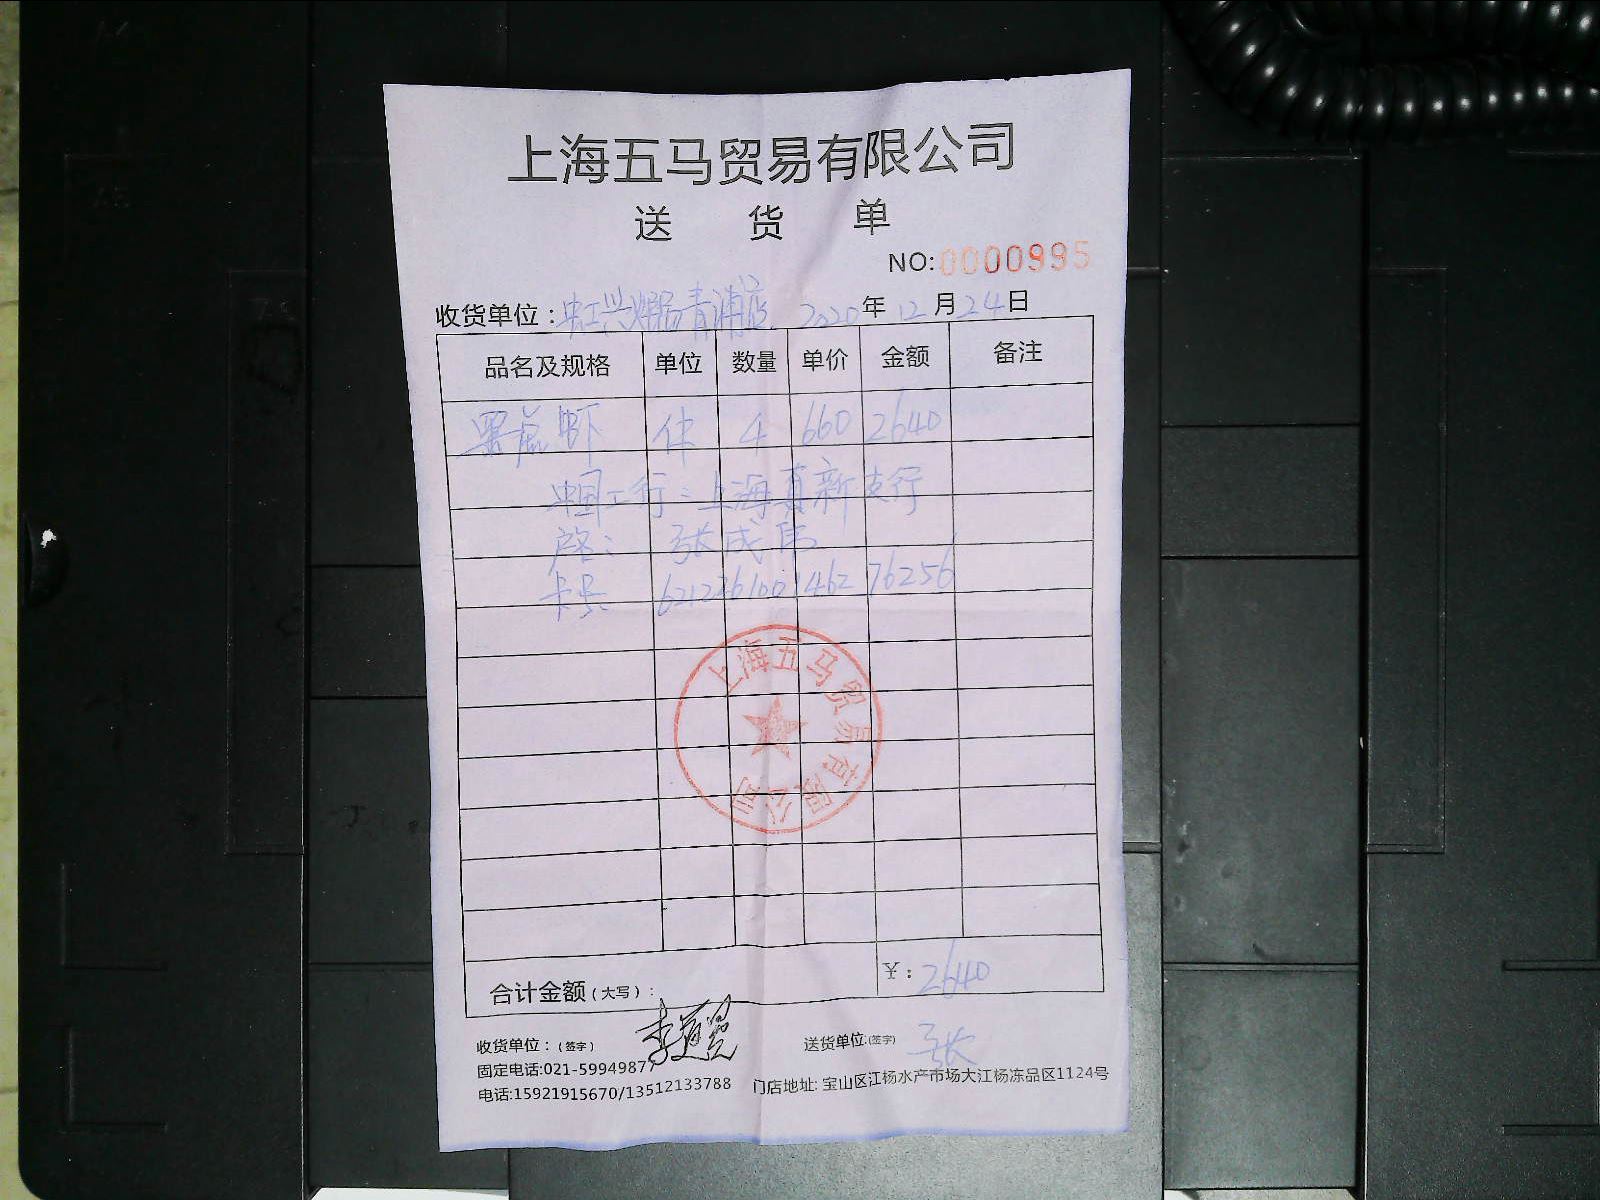 上海五马贸易有限公司
送 货 单
NO:0000995
收货单位: 青浦店 2020年12月24日
品名及规格 单位 数量 单价 金额 备注
黑虎虾 件 4 660 2640
中国工行:上海真新支行
户名: 张成伟
卡号: 621226100146276256
上海五马贸易有限公司
合计金额(大写): 2640
收货单位:(签字) 送货单位:(签字) 张
固定电话:021-59949877
电话:15921915670/13512133788 门店地址: 宝山区江杨水产市场大江杨冻品区1124号